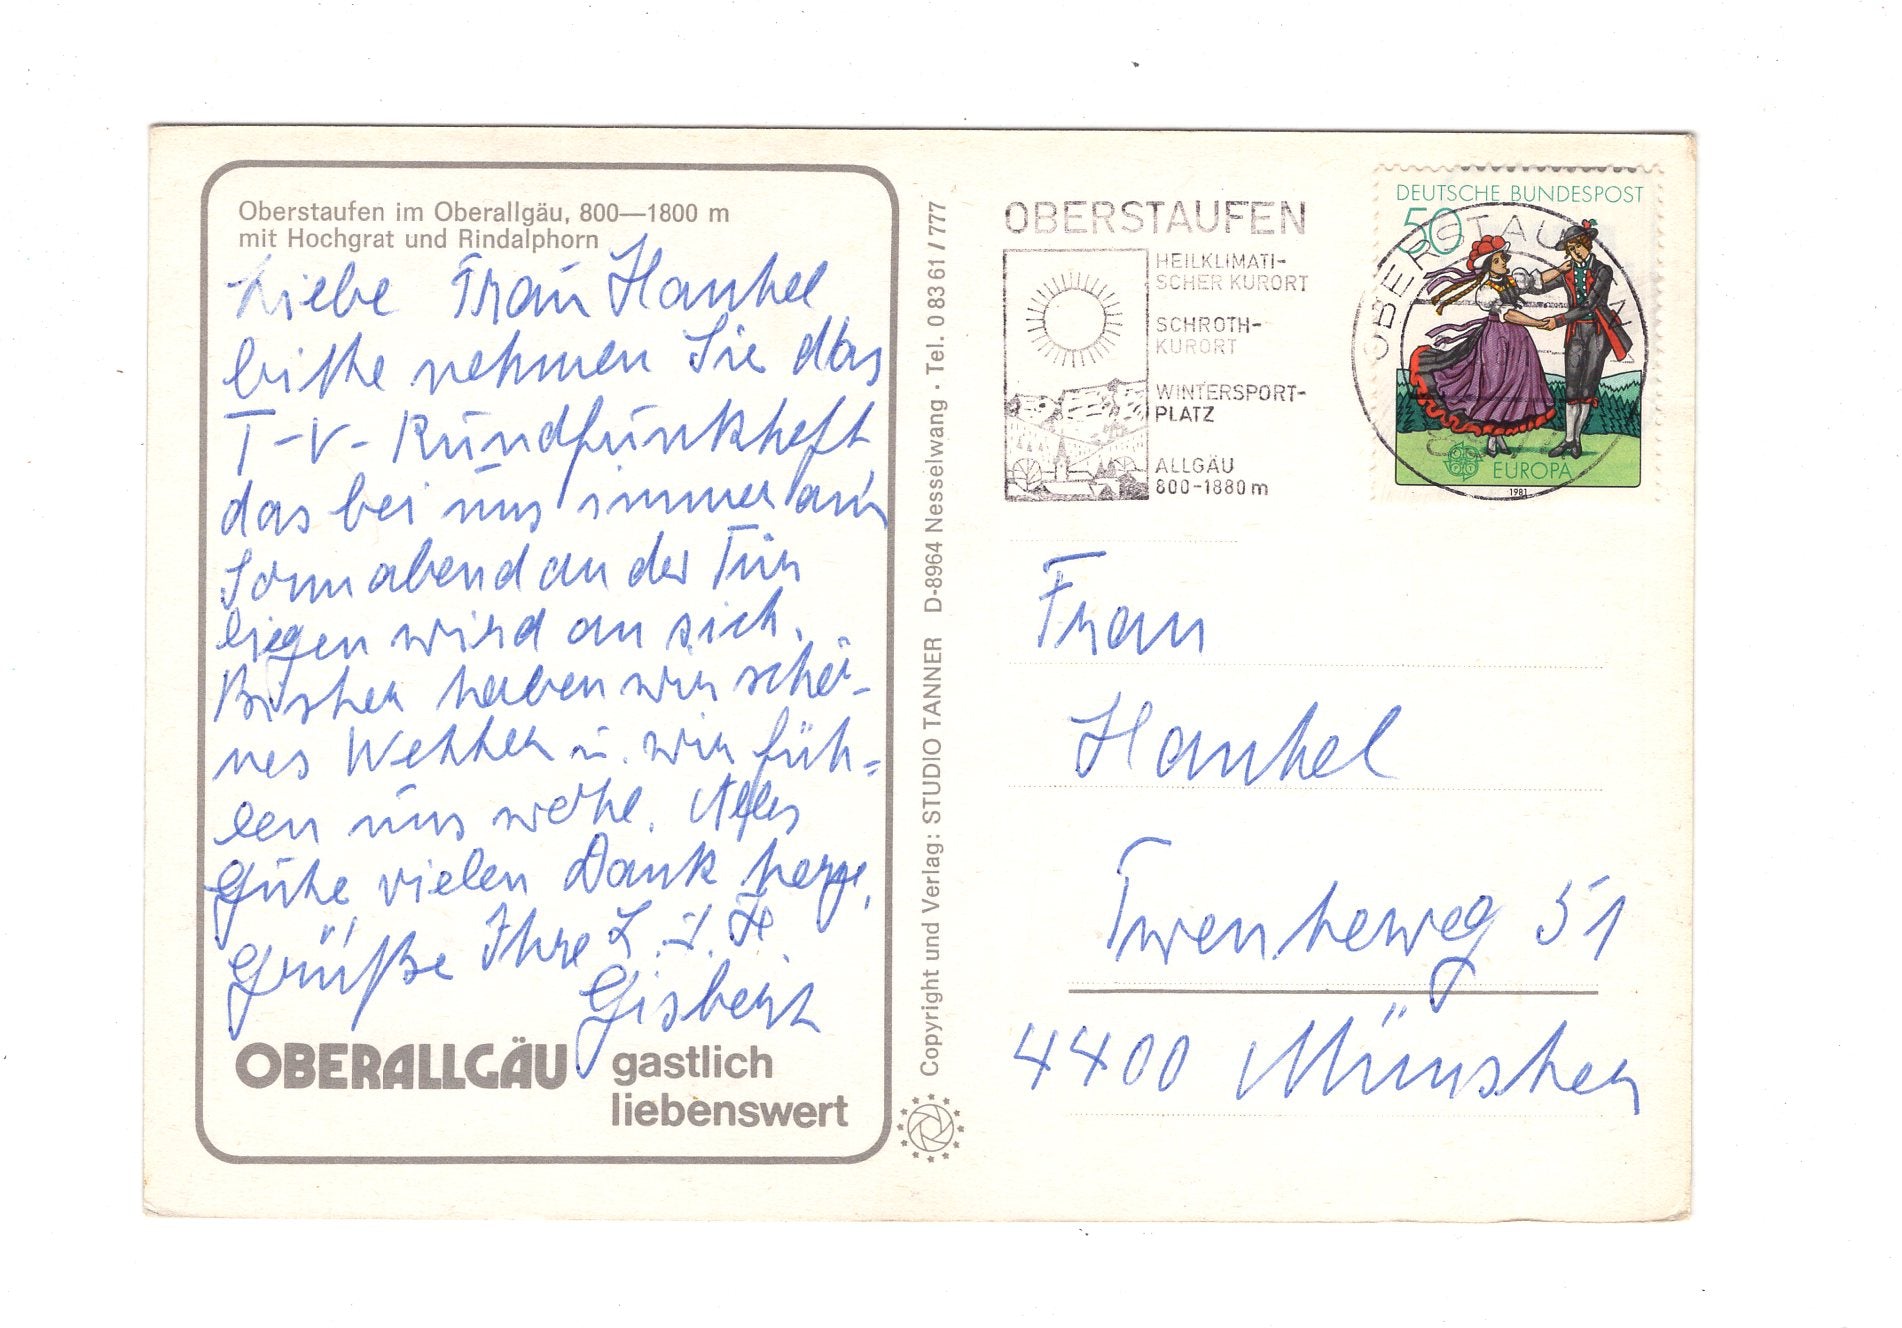 Oberstaufen im Oberallgäu, 800—1800 m
mit Hochgrat und Rindalphorn
Liebe Frau Hankel
bitte nehmen Sie das
T-V-Rundfunkheft
das bei uns immer am
Sonnabend an der Tür
liegen wird an sich.
Bisher haben wir schö-
nes Wetter u. wir füh=
len uns wohl. Alles
Gute vielen Dank herzl.
Grüße Ihre
Gisbert
OBERALLGÄU gastlich
liebenswert
Copyright und Verlag: STUDIO TANNER D-8964 Nesselwang · Tel. 0 83 61 / 777
OBERSTAUFEN
HEILKLIMATI-
SCHER KURORT
SCHROTH-
KURORT
WINTERSPORT-
PLATZ
ALLGÄU
800-1880 m
DEUTSCHE BUNDESPOST
50
EUROPA
1981
OBERSTAUFEN
Frau
Hankel
Twenteweg 51
4400 Münster